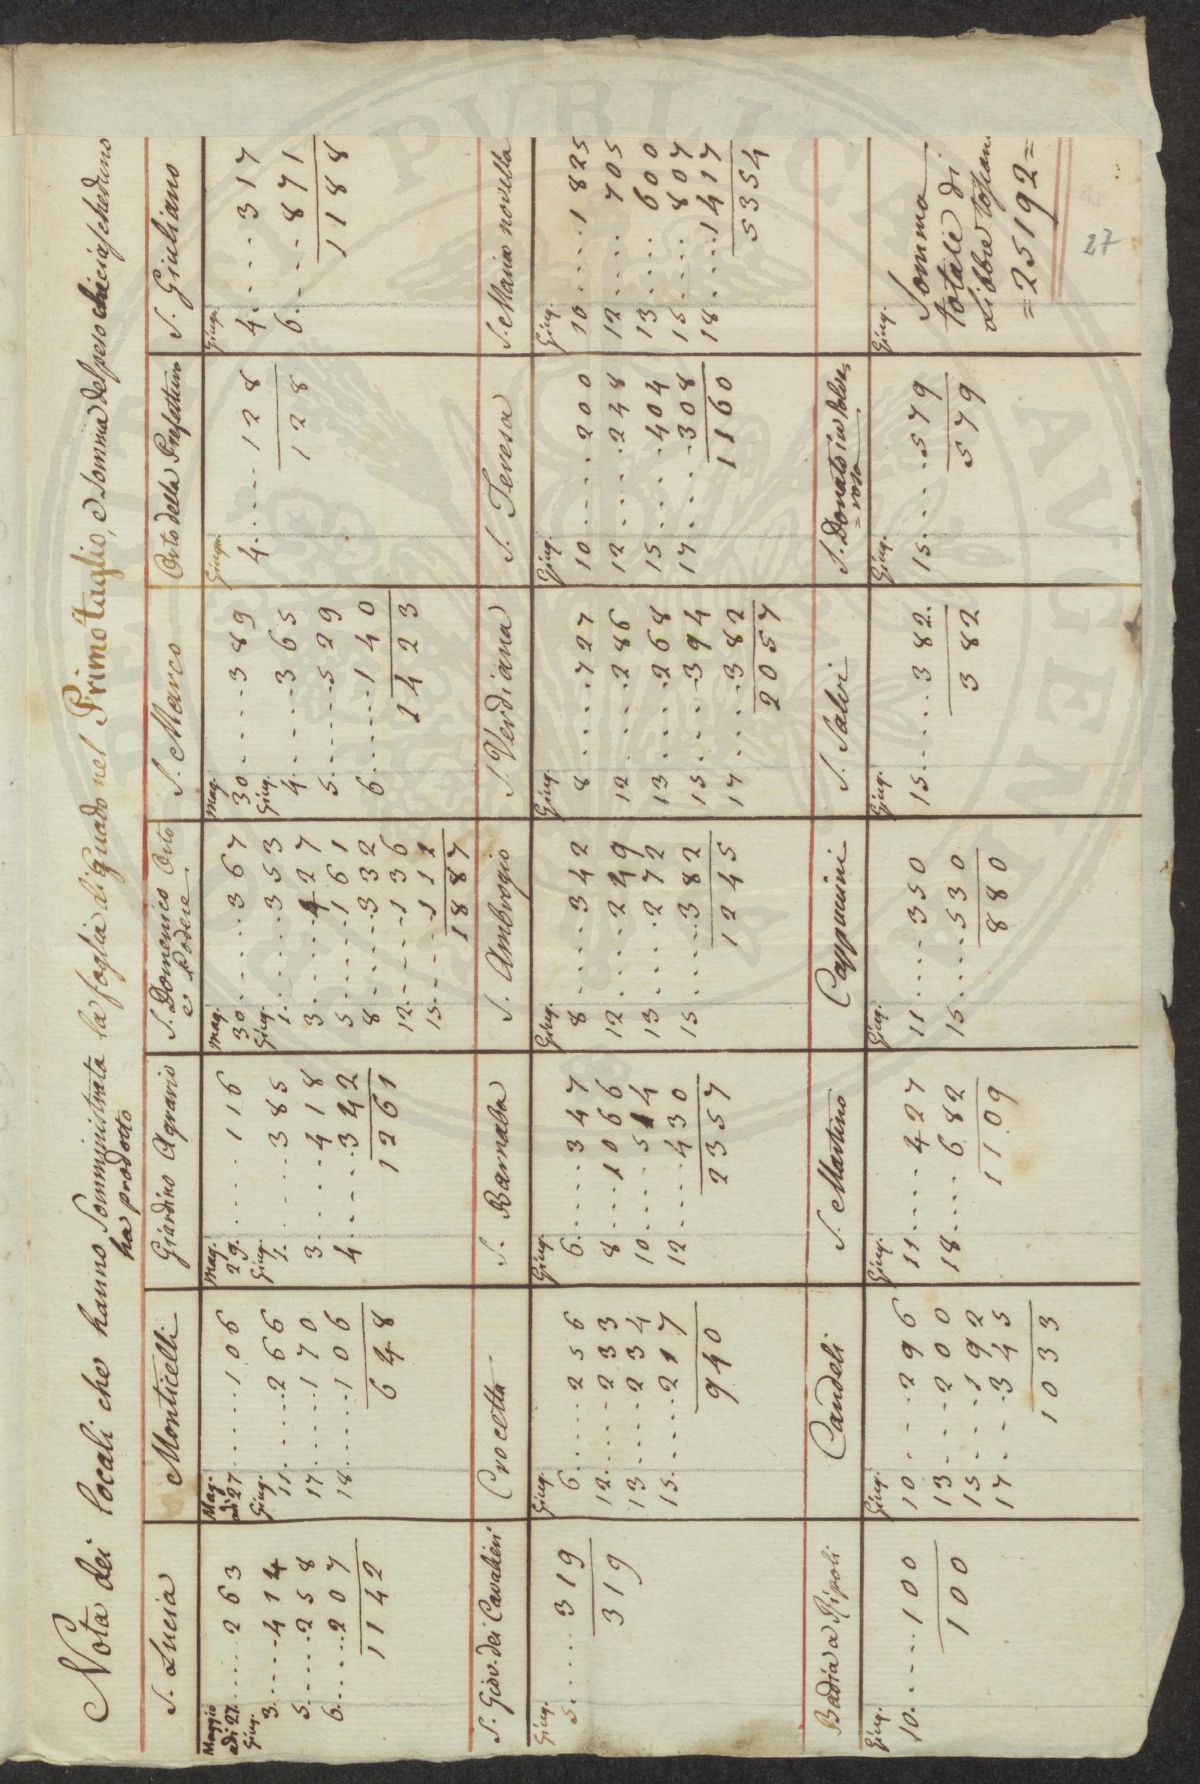 Nota dei locali che hanno somministrata la foglia di guado nel Primo taglio, e somma del peso che ciascheduno
ha prodotto
S. Lucia
Maggio
adi 27 ..... 263
Giug.
3 ..... 414
5 ..... 258
6 ..... 207
1142
Monticelli
Mag.
adi 27 ..... 106
Giug.
11 ..... 266
17 ..... 170
18 ..... 106
648
Giardino Agrario
Mag.
29 ..... 116
Giug.
1 ..... 385
3 ..... 418
4 ..... 342
1261
S. Domenico Orto
e Podere
Mag.
30 ..... 367
Giug.
1 ..... 353
3 ..... 427
5 ..... 161
8 ..... 332
12 ..... 136
15 ..... 111
1887
S. Marco
Mag.
30 ..... 389
Giug.
4 ..... 365
5 ..... 529
6 ..... 140
1423
Orto della Prefettura
Giugn.
4 ..... 128
128
S. Giuliano
Giug.
4 ..... 317
6 ..... 871
1188
S. Giov. dei Cavalieri
Giug.
5 ..... 319
319
Crocetta
Giug.
6 ..... 256
12 ..... 233
13 ..... 234
15 ..... 217
940
S. Barnaba
Giug.
6 ..... 347
8 ..... 1066
10 ..... 514
12 ..... 430
2357
S. Ambrogio
Giug.
8 ..... 342
12 ..... 249
13 ..... 272
15 ..... 382
1245
S. Verdiana
Giug.
8 ..... 727
12 ..... 286
13 ..... 268
15 ..... 394
17 ..... 382
2057
S. Teresa
Giug.
10 ..... 200
12 ..... 248
15 ..... 404
17 ..... 308
1160
S. Maria novella
Giug.
10 ..... 1825
12 ..... 705
13 ..... 600
15 ..... 807
18 ..... 1417
5354
Badia a Ripoli
Giug.
10 ..... 100
100
Candeli
Giug.
10 ..... 296
13 ..... 200
15 ..... 192
17 ..... 345
1033
S. Martino
Giug.
11 ..... 427
18 ..... 682
1109
Cappuccini
Giug.
11 ..... 350
15 ..... 530
880
S. Salvi
Giug.
15 ..... 382
382
S. Donato in
Giug.
15 ..... 579
579
Giug.
Somma
totale di
Libbre toscane
=25192=
27